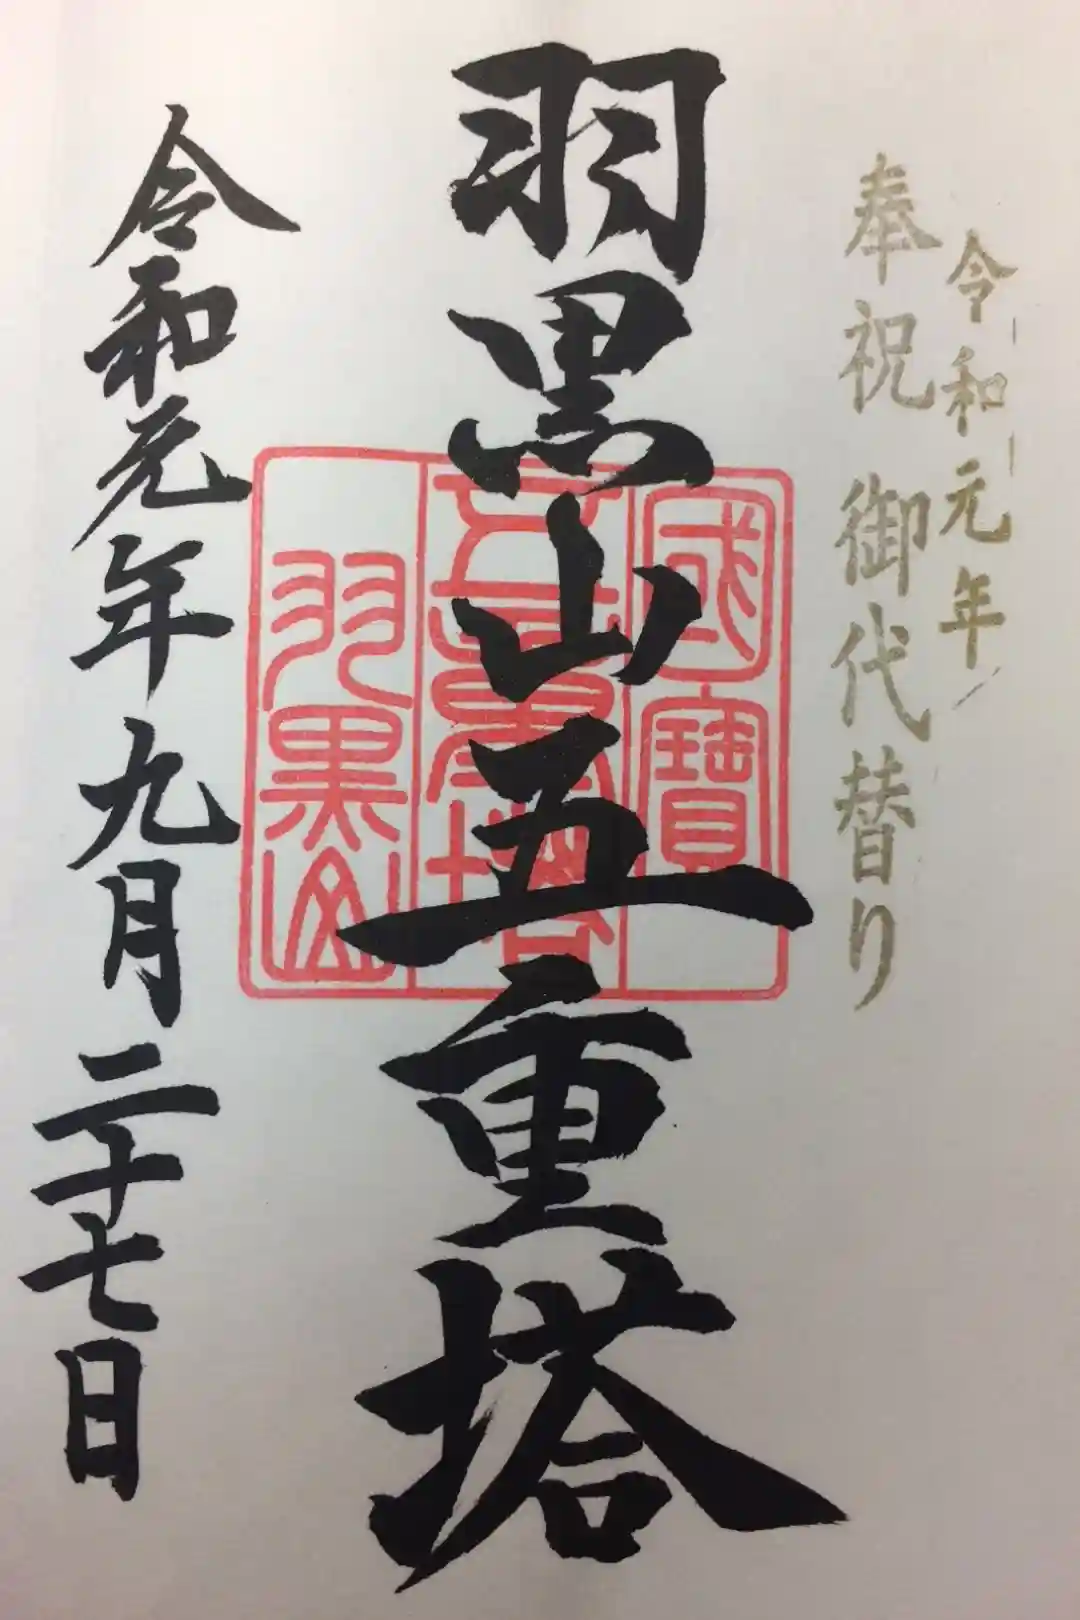 令和元年
奉祝 御代替り
羽黒山五重塔
國寳
五重塔
羽黒山
令和元年九月二十七日